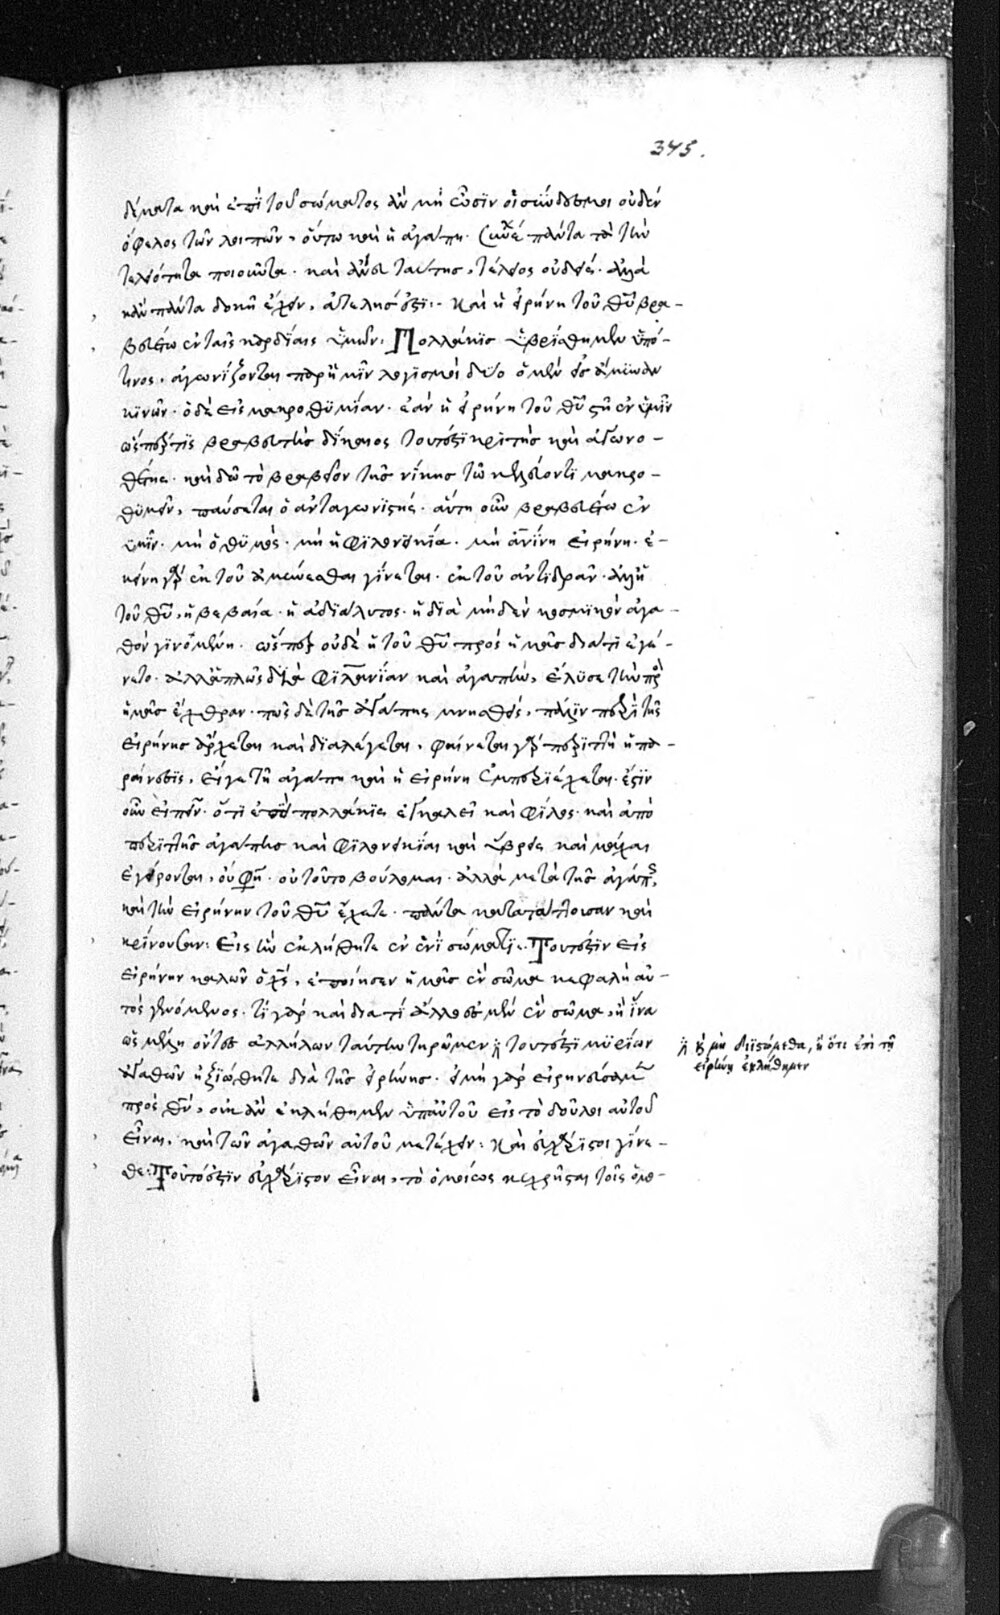 345.
δέματα καὶ ἐπὶ τοῦ σώματος ἂν μὴ ὦσιν οἱ σύνδεσμοι οὐδὲν
ὄφελος τῶν λοιπῶν, οὕτω καὶ ἡ ἀγάπη. πάντα τὰ τὴν
τελειότητα ποιοῦντα. καὶ ἄνευ ταύτης, τέλειος οὐδείς. ἀλλὰ
κἂν πάντα δοκῇ ἔχειν, ἀτελής ἐστι:- Καὶ ἡ εἰρήνη τοῦ θῦ βρα-
βευέτω ἐν ταῖς καρδίαις ὑμῶν. Πολλάκις ὑβρίσθημεν ὑπό
τινος, ἀγωνίζονται παρ' ἡμῖν λογισμοὶ δύο ὁ μὲν εἰς ἄμυναν
κινῶν. ὁ δὲ εἰς μακροθυμίαν. ἐὰν ἡ εἰρήνη τοῦ θῦ στῇ ἐν ἡμῖν
ὥσπερ τις βραβευτὴς δίκαιος τουτέστι κριτὴς καὶ ἀγωνο-
θέτης. καὶ δῷ τὸ βραβεῖον τῆς νίκης τῷ κελεύοντι μακρο-
θυμεῖν, παύσεται ὁ ἀνταγωνιστής. αὕτη οὖν βραβευέτω ἐν
ὑμῖν. μὴ ὁ θυμός. μὴ ἡ φιλονεικία. μὴ ἀνίνη εἰρήνη. ἐ-
κείνη γὰρ ἐκ τοῦ ἀμύνεσθαι γίνεται. ἐκ τοῦ ἀντιδρᾶν. ἀλλ' ἡ
τοῦ θῦ, ἡ βεβαία. ἡ ἀδιάλυτος. ἡ διὰ μηδὲν κοσμικὸν ἀγα-
θὸν γινομένη. ὥσπερ οὐδὲ ἡ τοῦ θῦ πρὸς ἡμᾶς διά τι ἐγέ-
νετο. ἀλλ' ἁπλῶς διὰ φιλανίαν καὶ ἀγάπην, ἔλυσε τὴν πρὸς
ἡμᾶς ἔχθραν. πῶς δὲ τῆς ἀγάπης μνησθείς, πάλιν περὶ τῆς
εἰρήνης ἄρχεται καὶ διαλέγεται. φαίνεται γὰρ περιττὴ ἡ πα-
ραίνεσις, εἴγε τῇ ἀγάπῃ καὶ ἡ εἰρήνη ἐμπεριέχεται. ἔστιν
οὖν εἰπεῖν. ὅτι ἐπεὶ πολλάκις ἐγκαλεῖ καὶ φίλος. καὶ ἀπὸ
περιττῆς ἀγάπης καὶ φιλονεικίαι καὶ ὕβρεις καὶ μάχαι
ἐγείρονται, οὔ φη. οὐ τοῦτο βούλομαι. ἀλλὰ μετὰ τῆς ἀγάπης,
καὶ τὴν εἰρήνην τοῦ θῦ ἔχετε. πάντα κατατάττουσαν καὶ
κρίνουσαν: Εἰς ἣν ἐκλήθητε ἐν ἑνὶ σώματι. Τουτέστιν εἰς
εἰρήνην καλῶν ὁ χς, ἐποίησεν ἡμᾶς ἓν σῶμα κεφαλὴ αὐ-
τὸς γενόμενος. τί γὰρ καὶ διὰ τί ἄλλο ἐσμὲν ἓν σῶμα, ἢ ἵνα
ὡς μέλη ὄντες ἀλλήλων ταύτην τηρῶμεν τουτέστι μυρίων
ἀγαθῶν ἠξιώθητε διὰ τῆς εἰρήνης. εἰ μὴ γὰρ εἰρηνεύσαμεν
πρὸς θν, οὐκ ἂν ἐκλήθημεν ὑπ' αὐτοῦ εἰς τὸ δοῦλοι αὐτοῦ
εἶναι, καὶ τῶν ἀγαθῶν αὐτοῦ μετέχειν: Καὶ εὐχάριστοι γίνε-
σθε: Τοῦτό ἐστιν εὐχάριστον εἶναι, τὸ ὁμοίως κεχρῆσθαι τοῖς ὁμο-
καὶ μὴ διϊστώμεθα, ἢ ὅτι ἐπὶ τῇ
εἰρήνῃ ἐκλήθημεν